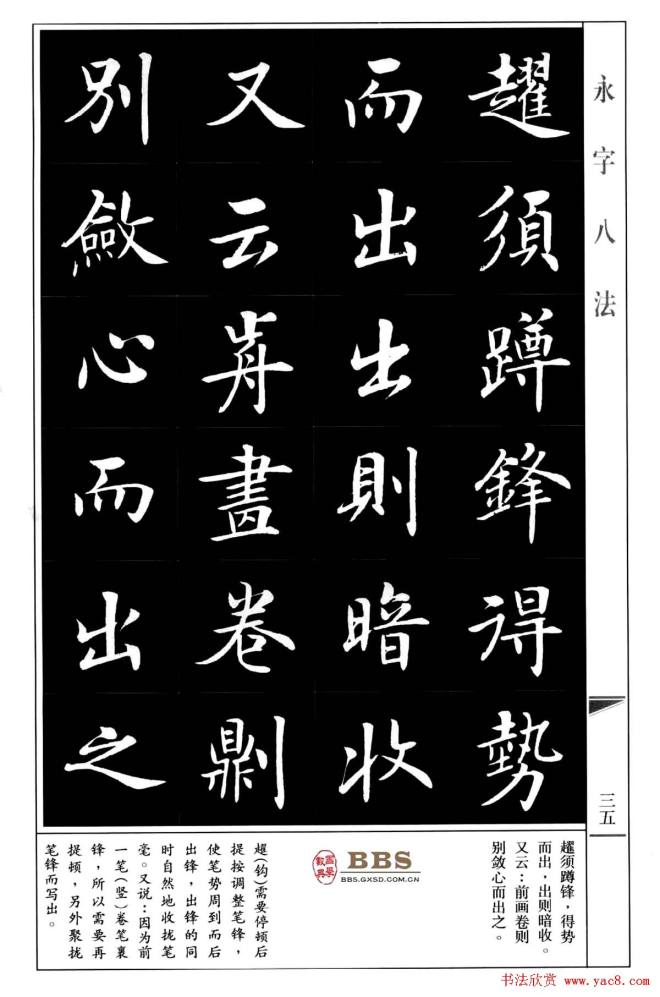 永字八法
趯須蹲鋒得勢
而出出則暗收
又云歬畫卷剘
別斂心而出之
三五
趯须蹲锋，得势
而出，出则暗收。
又云：前画卷则
别敛心而出之。
BBS
BBS.GXSD.COM.CN
趯(钩)需要停顿后
提按调整笔锋，
使笔势周到而后
出锋，出锋的同
时自然地收拢笔
毫。又说：因为前
一笔(竖)卷笔裹
锋，所以需要再
提顿，另外聚拢
笔锋而写出。
书法欣赏 www.yac8.com